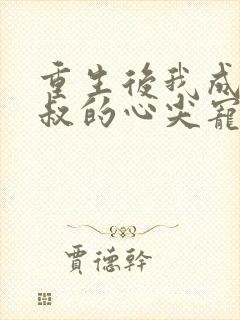 重生後我成
叔的心尖寵
賈德幹